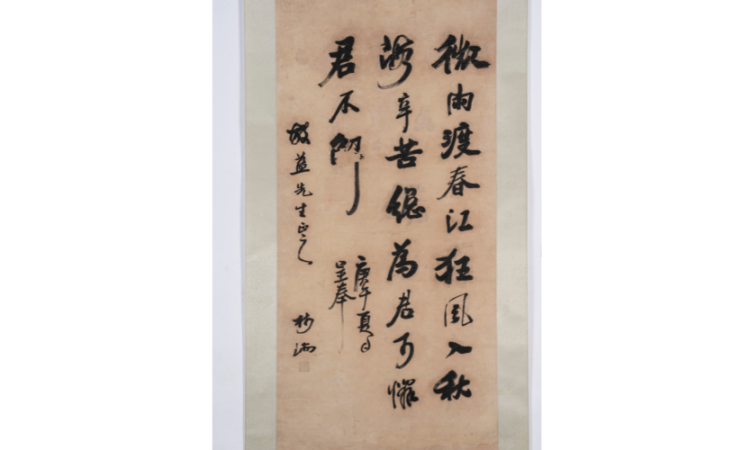 微雨渡春江狂風入秋
辛苦總為君可
君不
庚午夏日
呈奉
益先生正之